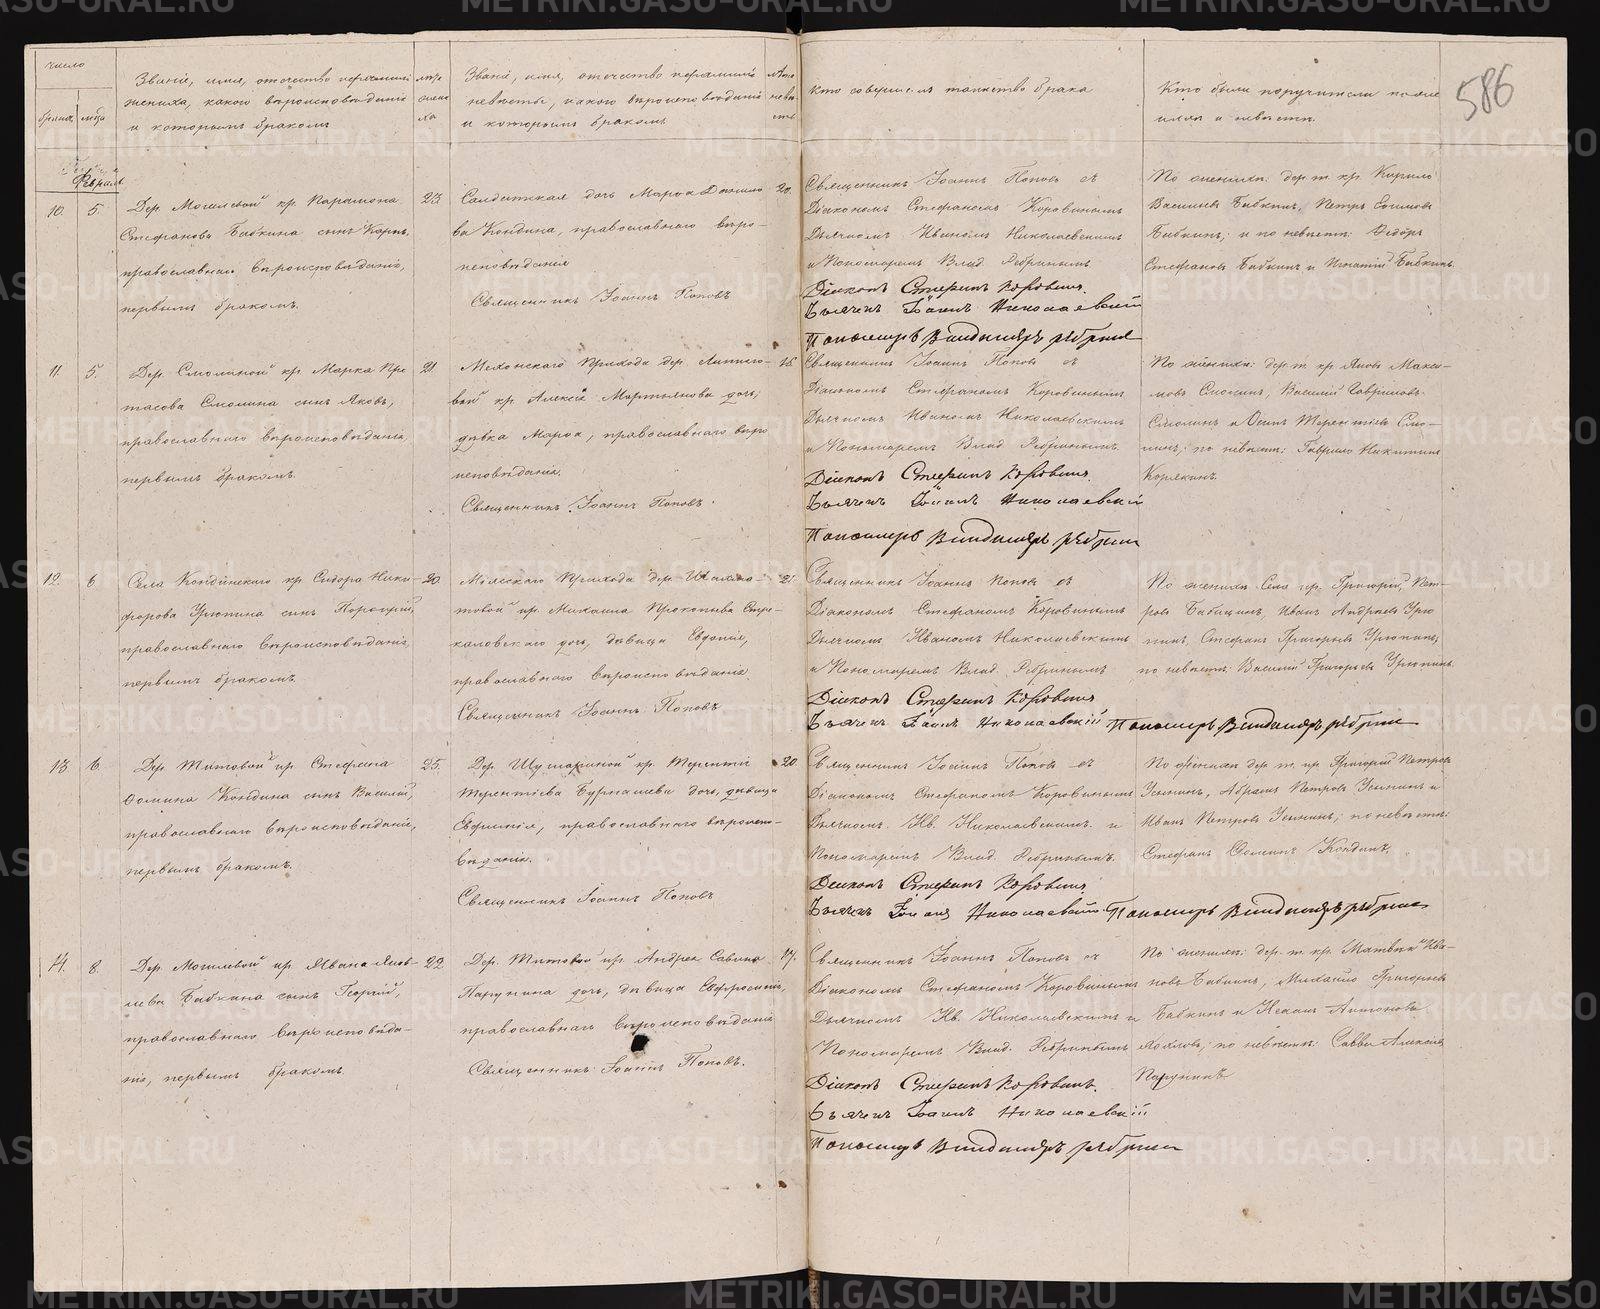 586
число
брака. люда
Званіе, имя, отечество и фамилія
жениха, какого вѣроисповѣданія
и которымъ бракомъ
Званіе, имя, отечество и фамилія
невѣсты, какого вѣроисповѣданія
и которымъ бракомъ
Кто совершилъ таинство брака
Кто были поручители по
и невѣстѣ.
Февраль
10. 5.
Дер. Могилевой кр. Парамона
Стефанова Бабкина сынъ Карпъ,
православнаго вѣроисповѣданія,
первымъ бракомъ.
23.
Солдатская дочь Марѳа Данило
ва Кондина, православнаго вѣро-
исповѣданія
Священникъ Іоаннъ Поповъ
20.
Священникъ Іоаннъ Поповъ съ
Діакономъ Стефаномъ Коровинымъ
Дьячкомъ Иваномъ Николаевскимъ
и Пономаремъ Влад. Ребринымъ
Діаконъ Стефанъ Коровинъ.
Дьячекъ Іоаннъ Николаевскій
Пономарь Владиміръ Ребринъ
По женихѣ: дер. т. кр. Кирило
Васильевъ Бабкинъ, Петръ Ефимовъ
Бабкинъ; и по невѣстѣ: Федоръ
Стефановъ Бабкинъ и Игнатій Бабкинъ.
11. 5.
Дер. Смолиной кр. Марка Про
тасова Смолина сынъ Яковъ,
православнаго вѣроисповѣданія,
первымъ бракомъ.
21.
Мехонскаго Прихода дер.
вой кр. Алексѣя Мартынова дочь,
дѣвка Марѳа, православнаго вѣро
исповѣданія.
Священникъ Іоаннъ Поповъ.
Священникъ Іоаннъ Поповъ съ
Діакономъ Стефаномъ Коровинымъ
Дьячкомъ Иваномъ Николаевскимъ
и Пономаремъ Влад. Ребринымъ
Діаконъ Стефанъ Коровинъ.
Дьячекъ Іоаннъ Николаевскій
Пономарь Владиміръ Ребринъ
По женихѣ: дер. т. кр. Яковъ Макси-
мовъ Смолинъ, Василій Гавриловъ
Смолинъ и Осипъ Терентіевъ Смо-
линъ; по невѣстѣ: Гаврило Никитинъ
Корякинъ.
12. 6
Села Кондинскаго кр. Сидора Ники-
форова Урюпина сынъ Порфирій,
православнаго вѣроисповѣданія,
первымъ бракомъ.
20.
Прихода дер.
товой кр. Михаила Прокопьева Стре-
каловскаго дочь, дѣвица Евдокія,
православнаго вѣроисповѣданія.
Священникъ Іоаннъ Поповъ
21.
Священникъ Іоаннъ Поповъ съ
Діакономъ Стефаномъ Коровинымъ
Дьячкомъ Иваномъ Николаевскимъ
и Пономаремъ Влад. Ребринымъ
Діаконъ Стефанъ Коровинъ
Дьячекъ Іоаннъ Николаевскій Пономарь Владиміръ Ребринъ
По женихѣ: Села кр. Григорій Пет-
ровъ Бабкинъ, Иванъ Андреевъ Урю
пинъ, Стефанъ Григорьевъ Урюпинъ,
по невѣстѣ: Василій Григорьевъ Урюпинъ.
13. 6.
Дер. Титовой кр. Стефана
Фомина Кондина сынъ Василій,
православнаго вѣроисповѣданія,
первымъ бракомъ.
25.
Дер. кр. Терентія
Терентіева Бурмашева дочь, дѣвица
Евфимія, православнаго вѣроиспо-
вѣданія.
Священникъ Іоаннъ Поповъ
20.
Священникъ Іоаннъ Поповъ съ
Діакономъ Стефаномъ Коровинымъ
Дьячкомъ Ив. Николаевскимъ и
Пономаремъ Влад. Ребринымъ.
Діаконъ Стефанъ Коровинъ.
Дьячекъ Іоаннъ Николаевскій Пономарь Владиміръ Ребринъ
По женихѣ дер. т. кр. Григорій Петровъ
Абрамъ Петровъ и
Иванъ Петровъ; по невѣстѣ:
Стефанъ Фоминъ Кондинъ.
14. 8.
Дер. Могилевой кр. Ивана Яков-
лева Бабкина сынъ Георгій,
православнаго вѣроисповѣда-
нія, первымъ бракомъ.
22
Дер. Титовой кр. Андрея Савина
Парунина дочь, дѣвица Евфросинія,
православнаго вѣроисповѣданія.
Священникъ Іоаннъ Поповъ.
Священникъ Іоаннъ Поповъ съ
Діакономъ Стефаномъ Коровинымъ
Дьячкомъ Ив. Николаевскимъ и
Пономаремъ Влад. Ребринымъ
Діаконъ Стефанъ Коровинъ.
Дьячекъ Іоаннъ Николаевскій
Пономарь Владиміръ Ребринъ
По женихѣ: дер. т. кр. Матвѣй Ива-
новъ Бабкинъ, Михайло Григорьевъ
Бабкинъ и Антоновъ
по невѣстѣ: Савва
Парунинъ
METRIKI.GASO-URAL.RU